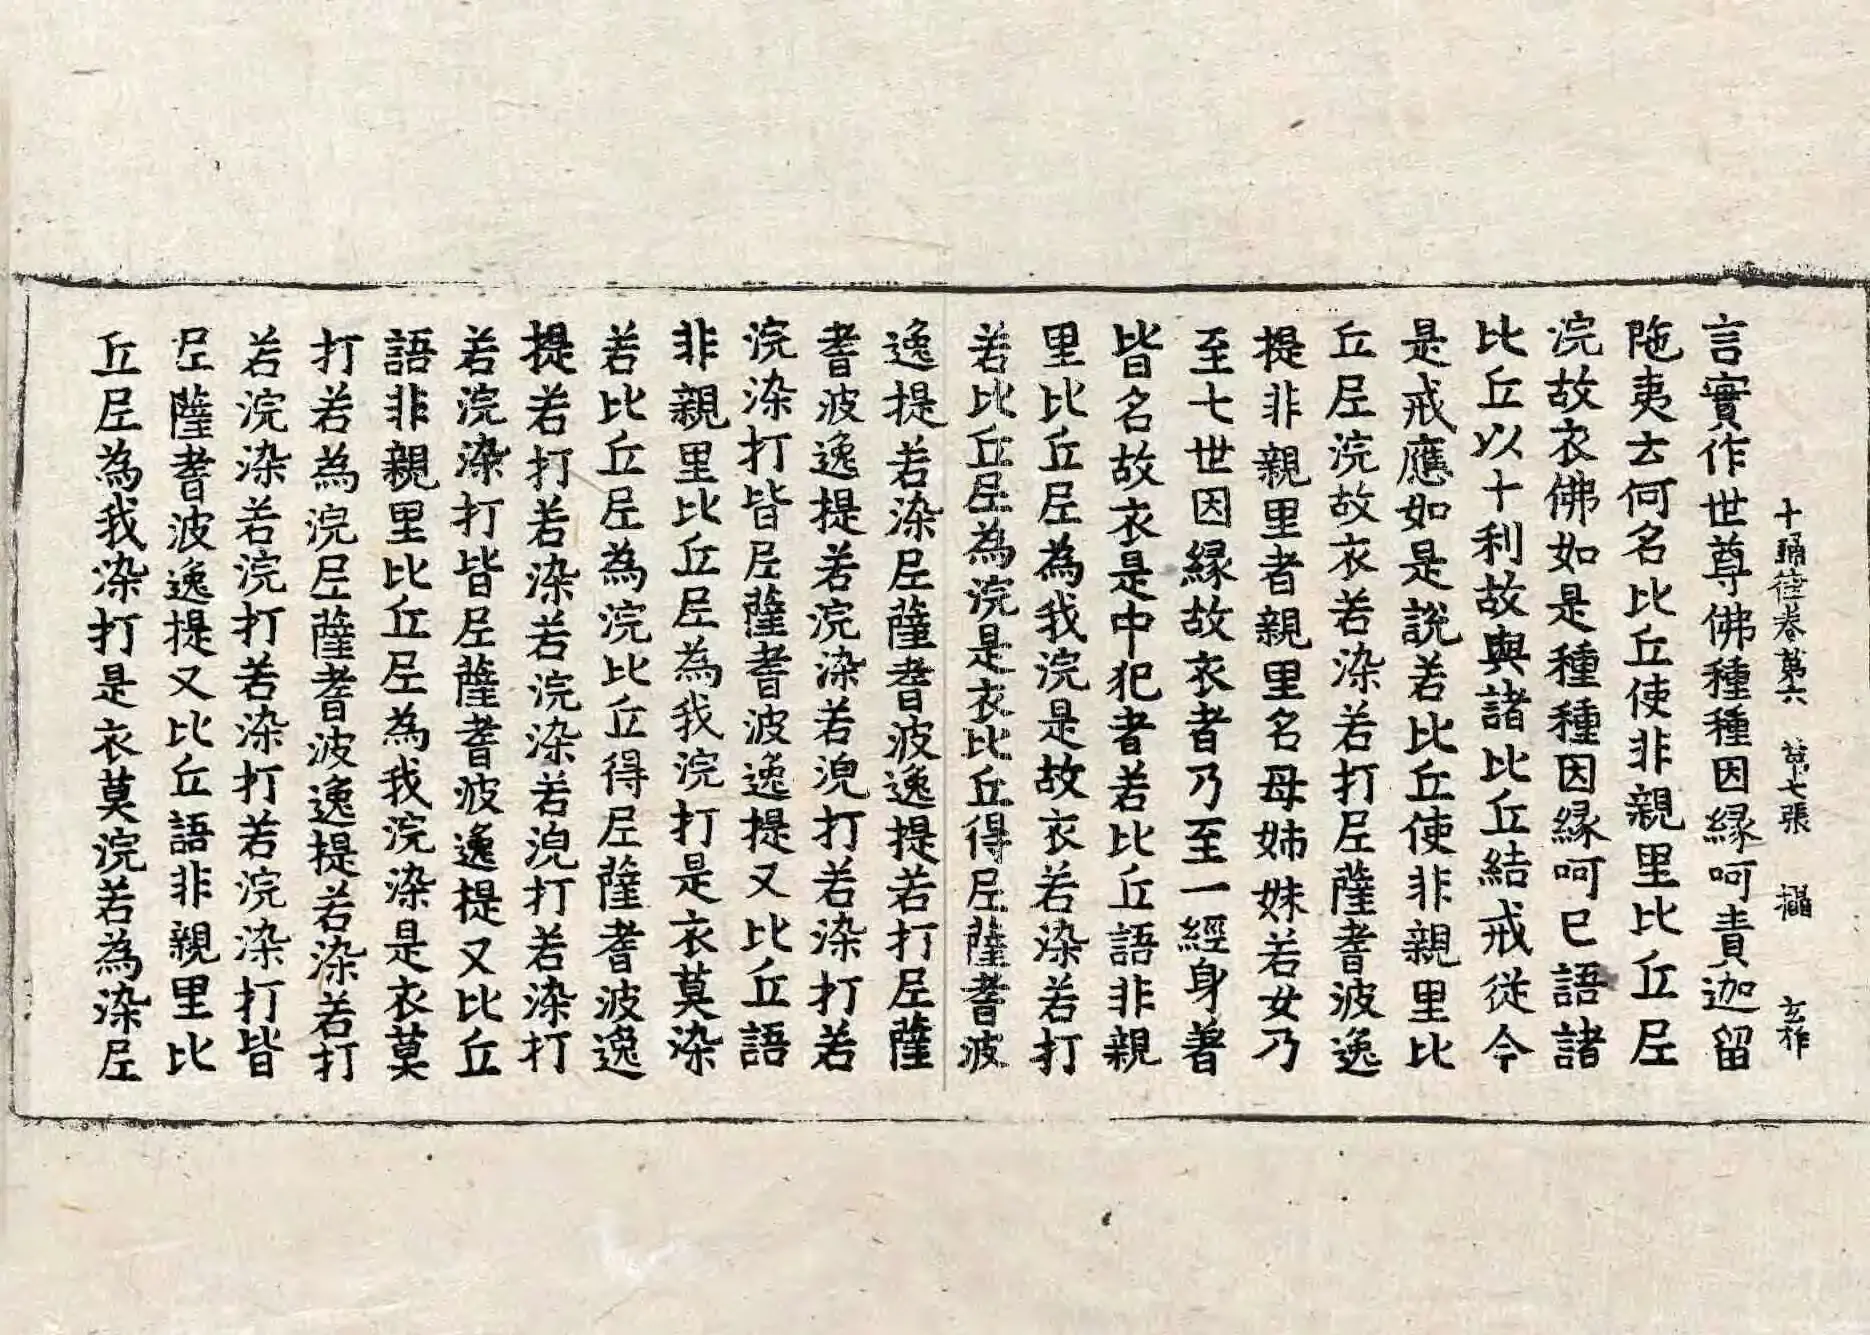 十誦律卷第六 第七張 攝 玄祚
言實作世尊佛種種因縁呵責迦留
陁夷去何名比丘使非親里比丘尼
浣故衣佛如是種種因縁呵已語諸
比丘以十利故與諸比丘結戒從今
是戒應如是說若比丘使非親里比
丘尼浣故衣若染若打尼薩耆波逸
提非親里者親里名母姉妹若女乃
至七世因縁故衣者乃至一經身著
皆名故衣是中犯者若比丘語非親
里比丘尼為我浣是故衣若染若打
若比丘尼為浣是衣比丘得尼薩耆波
逸提若染尼薩耆波逸提若打尼薩
耆波逸提若浣染若浣打若染打若
浣染打皆尼薩耆波逸提又比丘語
非親里比丘尼為我浣打是衣莫染
若比丘尼為浣比丘得尼薩耆波逸
提若打若染若浣染若浣打若染打
若浣染打皆尼薩耆波逸提又比丘
語非親里比丘尼為我浣染是衣莫
打若為浣尼薩耆波逸提若染若打
若浣染若浣打若染打若浣染打皆
尼薩耆波逸提又比丘語非親里比
丘尼為我染打是衣莫浣若為染尼